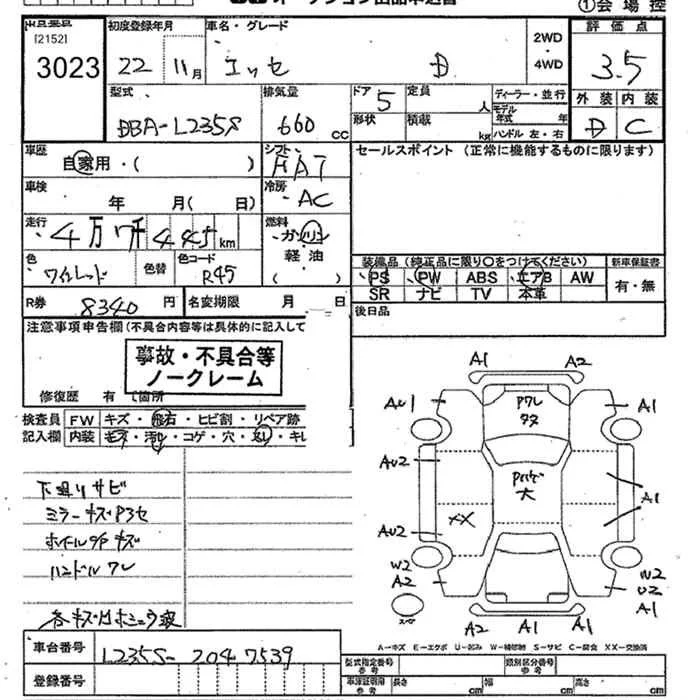 オークション出品申込書
①会場控
出品番号
[2152]
3023
初度登録年月
22
11月
車名・グレード
エッセ D
2WD
・
4WD
評価点
3.5
外装 内装
D C
型式
DBA-L235S
排気量
660 cc
ドア
5
形状
定員
人
積載
kg
ディーラー・並行
モデル年式 年
ハンドル 左・右
車歴
自家用・( )
シフト
FAT
セールスポイント (正常に機能するものに限ります)
車検
年 月( 日)
冷房
AC
走行
4万7千445km
燃料
ガソリン
軽油
( )
色
ワインレッド
色替
色コード
R45
装備品(純正品に限り〇をつけてください)
PS PW ABS エアB AW
SR ナビ TV 本革
新車保証書
有・無
R券
8340円
名変期限 月 日
後日品
注意事項申告欄(不具合内容等は具体的に記入して
事故・不具合等
ノークレーム
修復歴 有 (箇所
検査員
記入欄
FW キズ・飛石・ヒビ割・リペア跡
内装 キズ・汚れ・コゲ・穴・丸し・キレ
下廻りサビ
ミラーキズP3セ
ホイールタPキズ
ハンドルワレ
A1
A2
AU1
A1
PワレタX
AU2
大
A1
AU2
XX
W2
A2
W2
U2
A1
A2
A1
A1
A-キズ E-エクボ U-凹み W-補修跡 S-サビ C-腐食 XX-交換済
車台番号
L235S-2047539
登録番号
型式指定番号
類別区分番号
車庫証明用
長さ cm 幅 cm 高さ cm